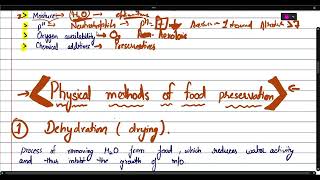 > Moisture → (H₂O) →
> pH → Neutrophils → pH-7
> Oxygen availability → O₂ →
> Chemical additives → Preservatives
Physical methods of food preservation
① Dehydration (drying).
process of removing H₂O from food, which reduces water activity
and thus inhibit the growth of m/o.